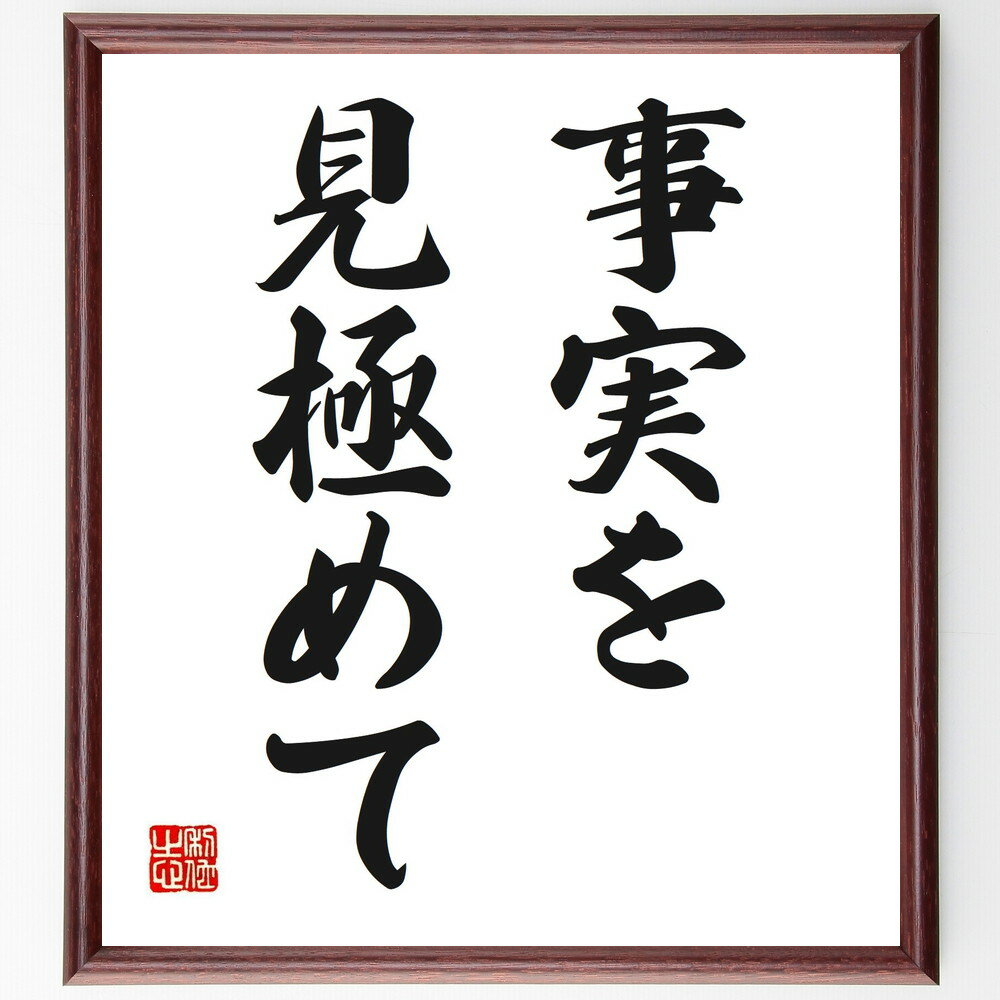 事実を
見極めて